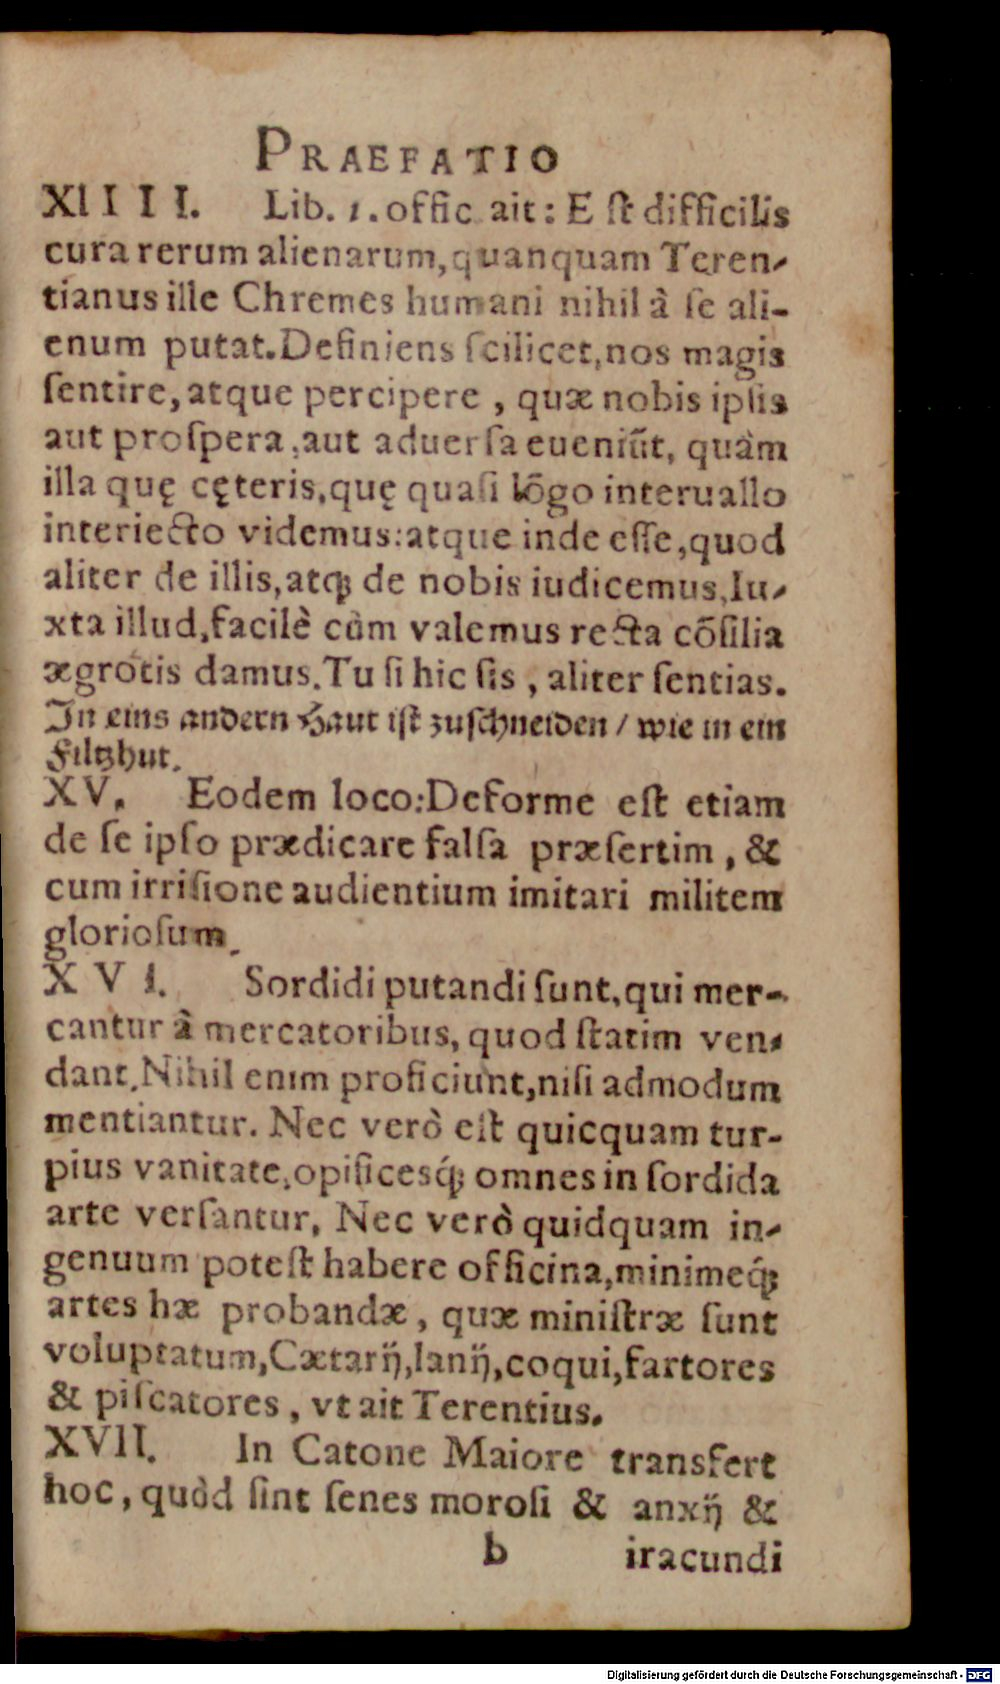 PRAEFATIO
XIIII. Lib. 1. offic ait: Eſt difficilis
cura rerum alienarum, quanquam Teren-
tianus ille Chremes humani nihil à ſe ali-
enum putat. Definiens ſcilicet, nos magis
ſentire, atque percipere, quæ nobis ipſis
aut proſpera, aut aduerſa eueniũt, quàm
illa quę cęteris, quę quaſi lõgo interuallo
interiecto videmus: atque inde eſſe, quod
aliter de illis, atq; de nobis iudicemus. Iu-
xta illud, facilè cùm valemus recta cõſilia
ægrotis damus. Tu ſi hic ſis, aliter ſentias.
In eins andern Haut iſt zuſchneiden / wie in ein
Filtzhut.
XV. Eodem loco: Deforme eſt etiam
de ſe ipſo prædicare falſa præſertim, &
cum irriſione audientium imitari militem
glorioſum.
XVI. Sordidi putandi ſunt, qui mer-
cantur à mercatoribus, quod ſtatim ven-
dant. Nihil enim proficiunt, niſi admodum
mentiantur. Nec verò eſt quicquam tur-
pius vanitate, opificesq́; omnes in ſordida
arte verſantur. Nec verò quidquam in-
genuum poteſt habere officina, minimeq́;
artes hæ probandæ, quæ miniſtræ ſunt
voluptatum, Cætarij, lanij, coqui, fartores
& piſcatores, vt ait Terentius.
XVII. In Catone Maiore transfert
hoc, quòd ſint ſenes moroſi & anxij &
b iracundi
Digitalisierung gefördert durch die Deutsche Forschungsgemeinschaft - DFG